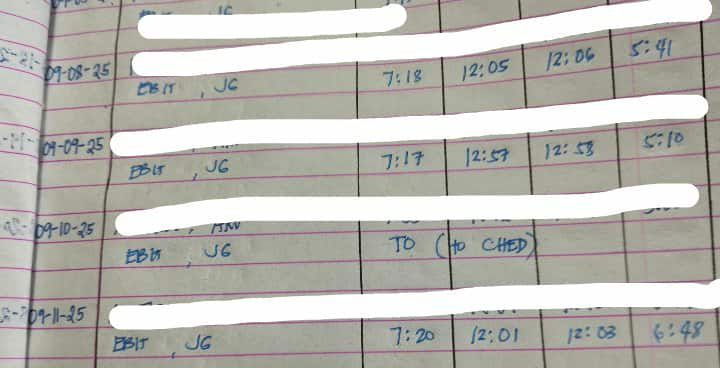 09-08-25
EBIT, JG 7:18 12:05 12:06 5:41
09-09-25
EBIT, JG 7:17 12:57 12:58 5:10
09-10-25
EBIT, JG TO (to CHED)
09-11-25
EBIT, JG 7:20 12:01 12:03 6:48